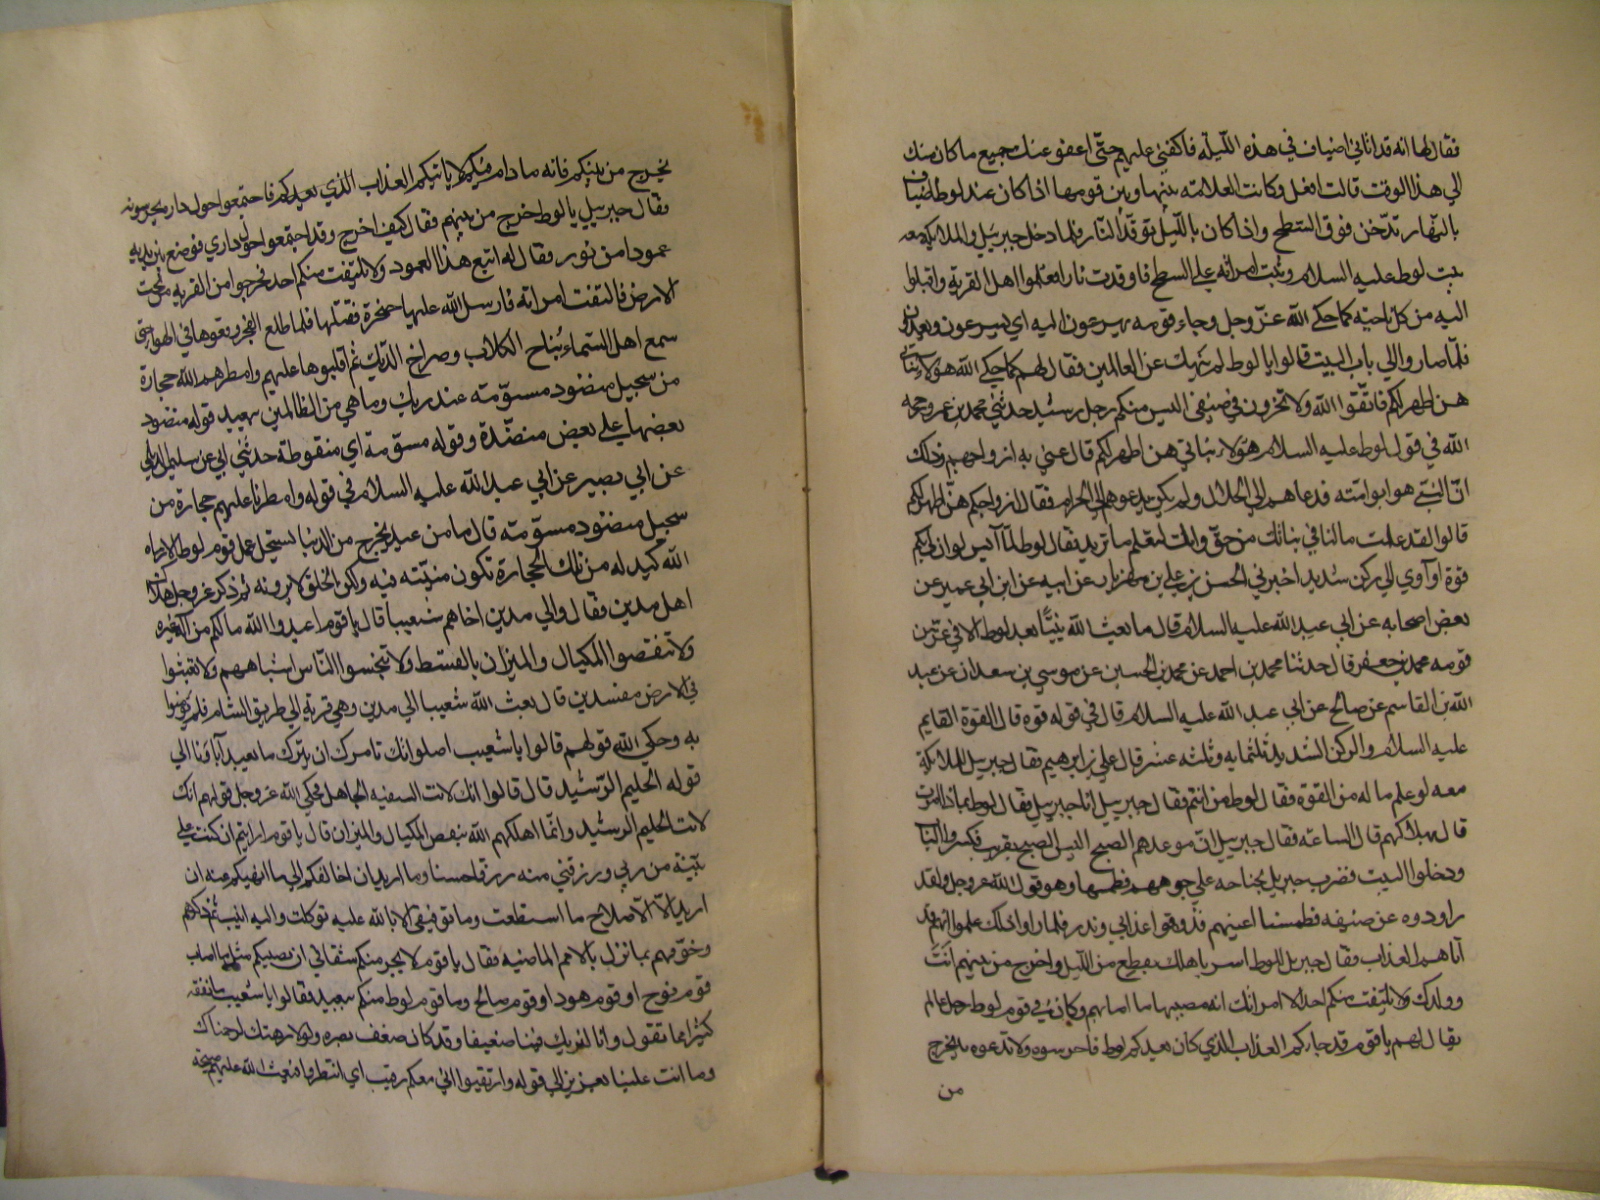 فقال لها انه قد اتاني اضياف في هذه الليلة فاكتمي عليهم حتى اعفو عنك جميع ما كان منك
الي هذا الوقت قالت افعل وكانت العلامة بينها وبين قومها اذا كان عند لوط اضياف
بالنهار تدخن فوق السطح واذا كان بالليل توقد النار فلما دخل جبرئيل والملائكة معه
بيت لوط عليه السلام وثبت امراته علي السطح فاوقدت نارا فعلموا اهل القرية واقبلوا
اليه من كل ناحية كما حكي الله عز وجل وجاءه قومه يهرعون اليه اي يسرعون ويعدون
فلما صاروا الي باب البيت قالوا يا لوط لم ننهك عن العالمين فقال لهم كما حكي الله هؤلاء بناتي
هن اطهر لكم فاتقوا الله ولا تخزون في ضيفي اليس منكم رجل رشيد حدثني محمد بن عمرو رحمه
الله في قول لوط عليه السلام هؤلاء بناتي هن اطهر لكم قال عني به ازواجهم وذلك
ان النبي هو ابو امته فدعاهم الي الحلال ولم يكن يدعوهم الي الحرام فقال ازواجكم هن اطهر لكم
قالوا لقد علمت ما لنا في بناتك من حق وانك لتعلم ما نريد فقال لوط لما آيس لو ان لي بكم
قوة او آوي الي ركن شديد اخبرني الحسن بن علي بن مهزيار عن ابيه عن ابن ابي عمير عن
بعض اصحابه عن ابي عبد الله عليه السلام قال ما بعث الله نبيًا بعد لوط الا في عز من
قومه محمد بن جعفر قال حدثنا محمد بن احمد عن محمد بن الحسين عن موسي بن سعدان عن عبد
الله بن القاسم عن صالح عن ابي عبد الله عليه السلام قال في قوله قوة قال القوة القايم
عليه السلام والركن الشديد ثلثمايه وثلثه عشر قال علي بن ابرهيم فقال جبرييل للملائكة
معه لو علم ما له من القوة فقال لوط من انتم فقال جبرييل انا جبرييل فقال لوط بماذا امرت
قال بهلاكهم قال الساعة فقال جبرييل ان موعدهم الصبح اليس الصبح بقريب فكسروا الباب
ودخلوا البيت فضرب جبرييل بجناحه علي وجوههم فطمسها وهو قول الله عز وجل ولقد
راودوه عن ضيفه فطمسنا اعينهم فذوقوا عذابي ونذر فلما راوا ذلك علموا انهم قد
اتاهم العذاب فقال جبرييل للوط اسر باهلك بقطع من الليل واخرج من بينهم انت
وولدك ولا يلتفت منكم احد الا امراتك انه مصيبها ما اصابهم وكان في قوم لوط رجل عالم
فقال لهم يا قوم قد جاءكم العذاب الذي كان يعدكم لوط فاحرسوه ولا تدعوه يخرج
من
يخرج من بينكم فانه ما دام فيكم لا ياتيكم العذاب الذي يعدكم فاجتمعوا حول داره يحرسونه
فقال جبرييل يا لوط اخرج من بينهم فقال كيف اخرج وقد اجتمعوا حول داري فوضع بين يديه
عمودا من نور فقال له اتبع هذا العمود ولا يلتفت منكم احد فخرجوا من القرية من تحت
الارض فالتفتت امراته فارسل الله عليها صخرة فقتلها فلما طلع الفجر رفعوها في الهوا حتي
سمع اهل السماء نباح الكلاب وصراخ الديك ثم اقلبوها عليهم وامطرهم الله حجارة
من سجيل منضود مسومة عند ربك وما هي من الظالمين ببعيد قوله منضود
بعضها علي بعض منضدة وقوله مسومة اي منقوطة حدثني ابي عن سليمان الديلمي
عن ابي بصير عن ابي عبد الله عليه السلام في قوله وامطرنا عليهم حجارة من
سجيل منضود مسومة قال ما من عبد يخرج من الدنيا يستحل عمل قوم لوط الا رماه
الله كبد له من تلك الحجارة تكون منيته فيه ولكن الخلق لا يرونه ثم ذكر عز وجل هلاك
اهل مدين فقال والي مدين اخاهم شعيبا قال يا قوم اعبدوا الله ما لكم من اله غيره
ولا تنقصوا المكيال والميزان بالقسط ولا تبخسوا الناس اشياءهم ولا تعثوا
في الارض مفسدين قال بعث الله شعيبا الي مدين وهي قرية الي طريق الشام فلم يومنوا
به وحكي الله قولهم قالوا يا شعيب اصلواتك تامرك ان نترك ما يعبد آباؤنا الي
قوله الحليم الرشيد قال قالوا انك لانت السفيه الجاهل فحكي الله عز وجل قولهم انك
لانت الحليم الرشيد وانما اهلكهم الله بنقص المكيال والميزان قال يا قوم ارايتم ان كنت علي
بينة من ربي ورزقني منه رزقا حسنا وما اريد ان اخالفكم الي ما انهيكم عنه ان
اريد الا الاصلاح ما استطعت وما توفيقي الا بالله عليه توكلت واليه انيب ثم ذكرهم
وخوفهم بما نزل بالامم الماضيه فقال يا قوم لا يجرمنكم شقاقي ان يصيبكم مثل ما اصاب
قوم نوح او قوم هود او قوم صالح وما قوم لوط منكم ببعيد فقالوا يا شعيب ما نفقه
كثيرا مما تقول وانا لنريك فينا ضعيفا وقد كان ضعف بصره ولولا رهطك لرجمناك
وما انت علينا بعزيز الي قوله وارتقبوا اني معكم رقيب اي انتظروا فبعث الله عليهم صيحة